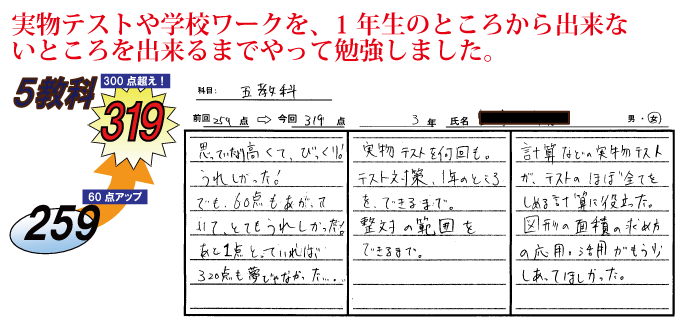 実物テストや学校ワークを、1年生のところから出来な
いところを出来るまでやって勉強しました。
5教科
300点超え！
319
60点アップ
259
科目: 五教科
前回 259 点 ⇨ 今回 319 点 3 年 氏名 男・女
思っていたより高くて、びっくり!
うれしかった!
でも、60点もあがって
いて、とてもうれしかった!
あと1点とっていれば
320点も夢じゃなかった....
実物テストを何回も。
テスト対策、1年のところ
を、できるまで。
整対の範囲を
できるまで。
計算などの実物テスト
が、テストのほぼ全てを
しめる計算に役立った。
図形の面積の求め方
の応用・活用がもう少し
あってほしかった。